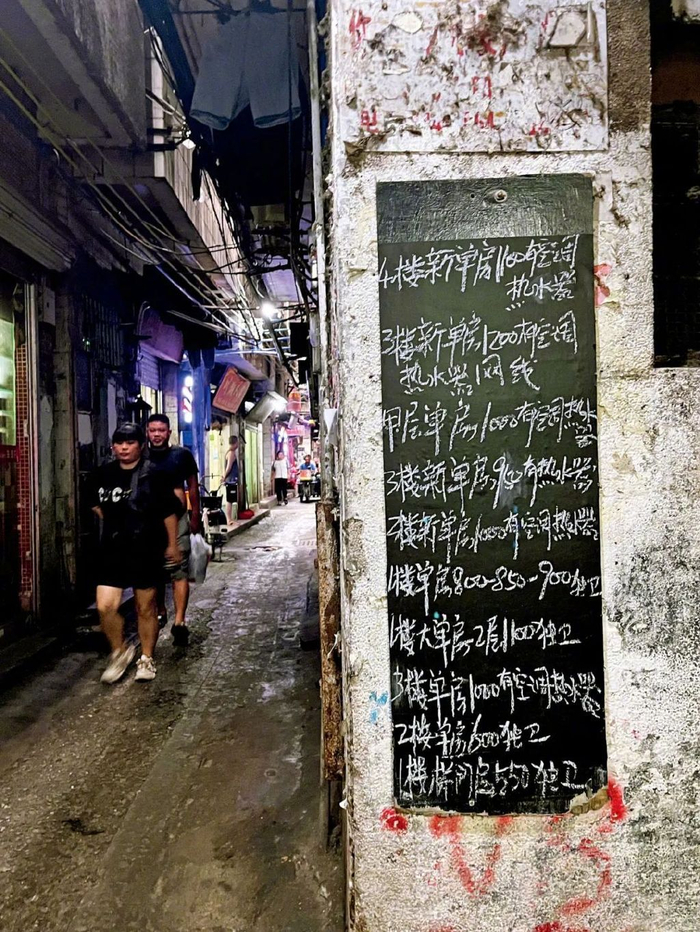 4楼新单房1100有空调
热水器
3楼新单房1200有空调
热水器网线
单房1000有空调热水
器
3楼新单房 有热水器
2楼新单房1000有空调热水器
1楼单房800-850-900独卫
1楼大单房2层1100独卫
3楼单房1000有空调热水器
2楼单房600独卫
1楼 房550独卫